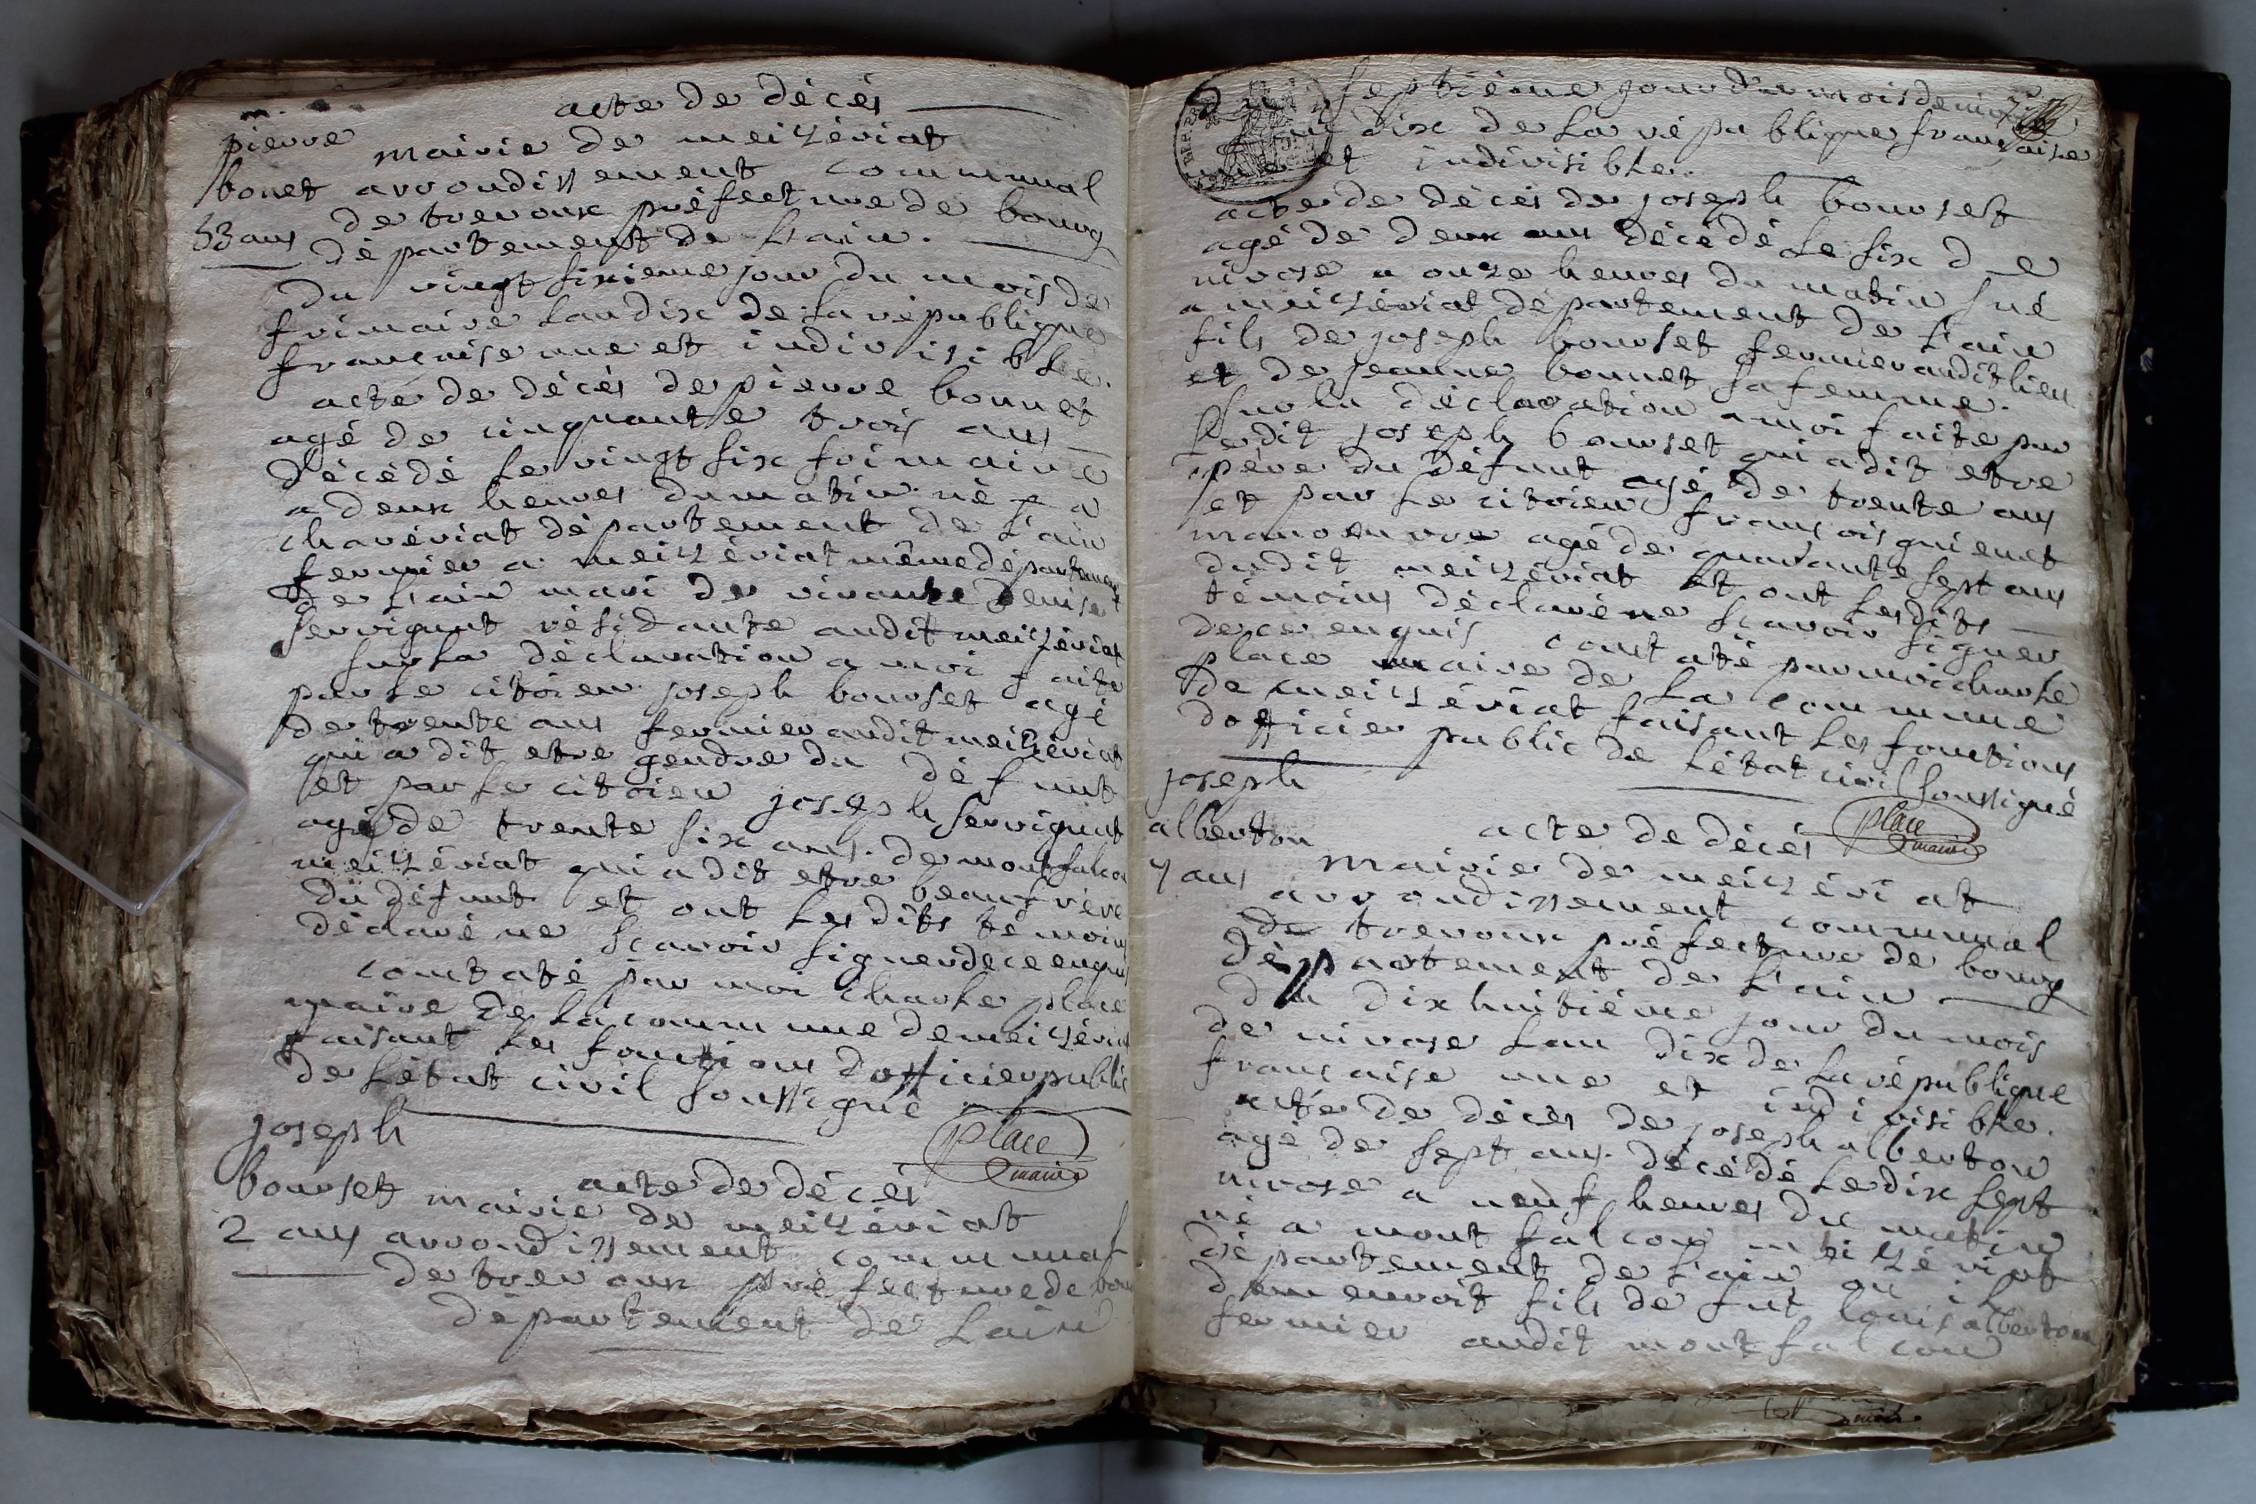 acte de décés
pierre
mairie de meizériat
bonet arrondissement communal
53 ans de trevoux préfecture de bourg
département de Lain.
du vingt sixieme jour du mois de
frimaire Lan dix de La république
française une et indivisible.
acte de décés de pierre bonnet
agé de cinquante trois ans
décédé Le vingt six frimaire
a deux heures du matin né a
chavériat département de Lain
fermier a meizériat même département
de Lain mari de vivante denise
servignat résidante audit meizériat
sur La déclaration a moi faite
par Le citoien joseph bourset agé
de trente ans fermier audit meizériat
qui a dit etre gendre du défunt
et par Le citoien joseph servignat
agé de trente six ans. de montfalcon
meizériat qui a dit etre beaufrère
du défunt et ont Lesdits témoins
déclaré ne scavoir signer de ce enquis
constaté par moi charle place
maire de La commune de meizériat
faisant Les fonctions dofficier public
de Létat civil soussigné
place
maire
joseph
acte de décés
bourset mairie de meizériat
2 ans arrondissement communal
de trevoux préfecture de bour
département de Lain
septième jour du mois de nivose
dix de La république française
une et indivisible.
acte de décés de joseph bourset
agé de deux ans décédé Le six de
nivose a onze heures du matin né
a meizériat département de Lain
fils de joseph bourset fermier audit lieu
et de jeanne bonnet sa femme.
sur La déclaration a moi faite par
Ledit joseph bourset qui a dit etre
père du défunt agé de trente ans
et par Le citoien françois quienet
manoeuvre agé de quarante sept ans
dudit meizériat Et ont Lesdits
témoins déclaré ne scavoir signer
de ce enquis constaté par moi charle
place maire de La commune
de meizériat faisant Les fonctions
dofficier public de Létat civil soussigné
place
maire
joseph
alberton acte de décés
7 ans mairie de meizériat
arrondissement communal
de trevoux préfecture de bourg
département de Lain
du dix huitième jour du mois
de nivose Lan dix de La république
française une et indivisible.
acte de décés de joseph alberton
agé de sept ans. décédé Le dix sept
nivose a neuf heures du matin
né a mont falcon meizériat
département de Lain ou il
demeuroit fils de fut Louis alberton
fermier audit montfalcon